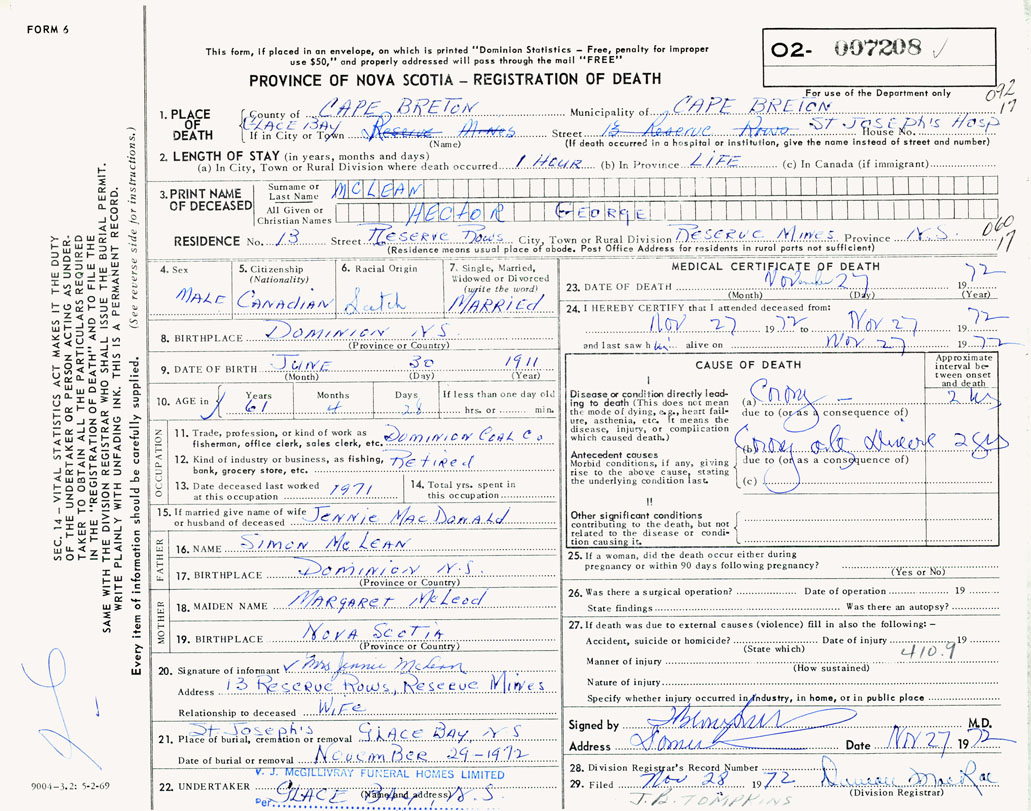 FORM 6
This form, if placed in an envelope, on which is printed "Dominion Statistics – Free, penalty for improper
use $50," and properly addressed will pass through the mail "FREE"
PROVINCE OF NOVA SCOTIA – REGISTRATION OF DEATH
O2- 007208 ✓
For use of the Department only
092
17
1. PLACE OF DEATH
County of CAPE BRETON Municipality of CAPE BRETON
GLACE BAY
If in City or Town Reserve Mines Street 13 Reserve Rows House No. ST JOSEPH'S HOSP
(Name) (If death occurred in a hospital or institution, give the name instead of street and number)
2. LENGTH OF STAY (in years, months and days)
(a) In City, Town or Rural Division where death occurred 1 HOUR (b) In Province LIFE (c) In Canada (if immigrant)
3. PRINT NAME OF DECEASED
Surname or Last Name MCLEAN
All Given or Christian Names HECTOR GEORGE
RESIDENCE No. 13 Street RESERVE ROWS City, Town or Rural Division RESERVE MINES Province N.S.
(Residence means usual place of abode. Post Office Address for residents in rural parts not sufficient)
060
17
4. Sex MALE
5. Citizenship (Nationality) CANADIAN
6. Racial Origin
7. Single, Married, Widowed or Divorced (write the word) MARRIED
8. BIRTHPLACE DOMINION N.S.
(Province or Country)
9. DATE OF BIRTH JUNE 30 1911
(Month) (Day) (Year)
10. AGE in Years 61 Months 4 Days 28 If less than one day old hrs. or min.
OCCUPATION
11. Trade, profession, or kind of work as fisherman, office clerk, sales clerk, etc. DOMINION COAL CO
12. Kind of industry or business, as fishing, bank, grocery store, etc. RETIRED
13. Date deceased last worked at this occupation 1971
14. Total yrs. spent in this occupation
15. If married give name of wife or husband of deceased JENNIE MACDONALD
FATHER
16. NAME SIMON MCLEAN
17. BIRTHPLACE DOMINION N.S.
(Province or Country)
MOTHER
18. MAIDEN NAME MARGARET MCLEOD
19. BIRTHPLACE NOVA SCOTIA
(Province or Country)
20. Signature of informant ✓ Mrs Jennie McLean
Address 13 RESERVE ROWS, RESERVE MINES
Relationship to deceased WIFE
21. Place of burial, cremation or removal ST JOSEPH'S GLACE BAY, N S
Date of burial or removal NOVEMBER 29-1972
V. J. McGILLIVRAY FUNERAL HOMES LIMITED
22. UNDERTAKER GLACE BAY, N.S.
(Name and address)
Per
MEDICAL CERTIFICATE OF DEATH
23. DATE OF DEATH November 27 1972
(Month) (Day) (Year)
24. I HEREBY CERTIFY that I attended deceased from:
Nov 27 1972 to Nov 27 1972
and last saw him alive on Nov 27 1972
CAUSE OF DEATH
Approximate interval between onset and death
I
Disease or condition directly leading to death (This does not mean the mode of dying, e.g., heart failure, asthenia, etc. It means the disease, injury, or complication which caused death.)
(a) 2 hrs
due to (or as a consequence of)
Antecedent causes
Morbid conditions, if any, giving rise to the above cause, stating the underlying condition last.
(b)
due to (or as a consequence of)
(c)
II
Other significant conditions
contributing to the death, but not related to the disease or condition causing it.
25. If a woman, did the death occur either during
pregnancy or within 90 days following pregnancy?
(Yes or No)
26. Was there a surgical operation? Date of operation 19
State findings Was there an autopsy?
27. If death was due to external causes (violence) fill in also the following: –
Accident, suicide or homicide? Date of injury 19
(State which)
410.9
Manner of injury
(How sustained)
Nature of injury
Specify whether injury occurred in industry, in home, or in public place
Signed by M.D.
Address Date Nov 27 1972
28. Division Registrar's Record Number
29. Filed Nov 28 1972 Duncan MacRae
(Division Registrar)
J.B. TOMPKINS
SEC. 14 – VITAL STATISTICS ACT MAKES IT THE DUTY
OF THE UNDERTAKER OR PERSON ACTING AS UNDER-
TAKER TO OBTAIN ALL THE PARTICULARS REQUIRED
IN THE "REGISTRATION OF DEATH" AND TO FILE THE
SAME WITH THE DIVISION REGISTRAR WHO SHALL ISSUE THE BURIAL PERMIT.
WRITE PLAINLY WITH UNFADING INK. THIS IS A PERMANENT RECORD.
Every item of information should be carefully supplied. (See reverse side for instructions.)
9004-3.2: 5-2-69